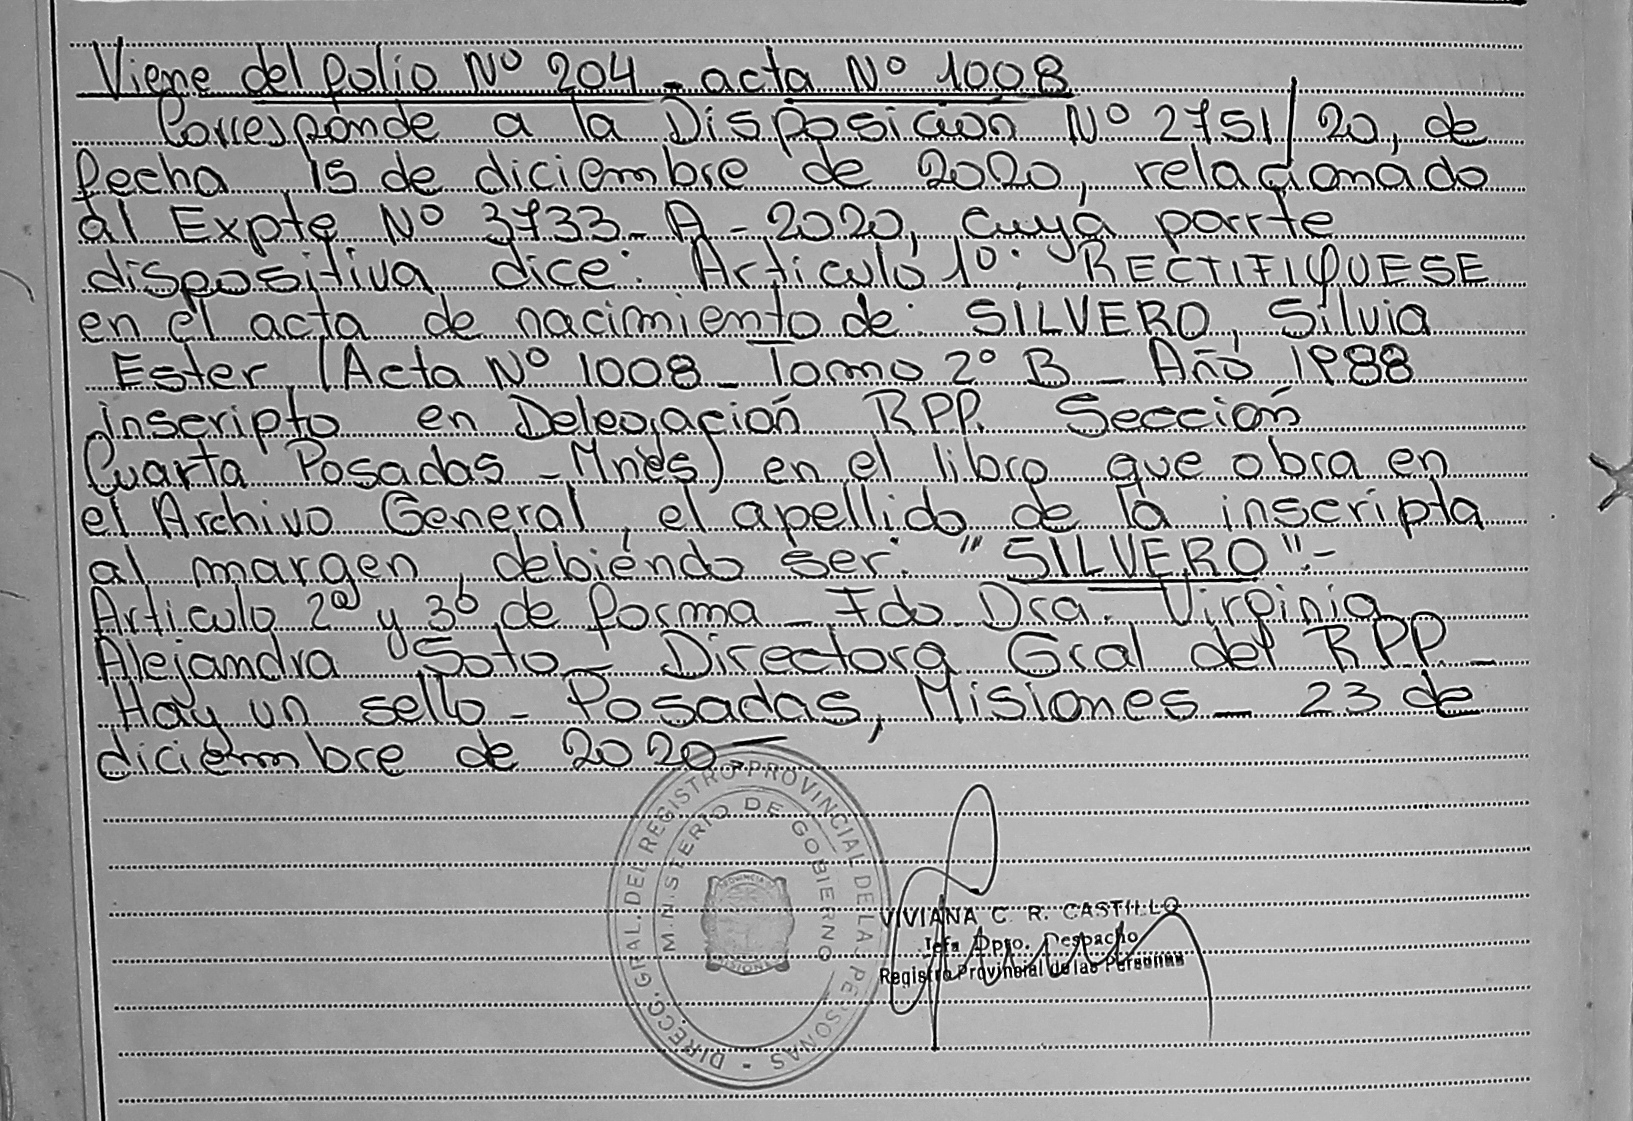 Viene del folio Nº 204 - acta Nº 1008
Corresponde a la Disposición Nº 2751/20, de
fecha 15 de diciembre de 2020, relacionado
al Expte Nº 3733 - A - 2020, cuya parrte
dispositiva dice: Articulo 1º: RECTIFIQUESE
en el acta de nacimiento de: SILVERO, Silvia
Ester, (Acta Nº 1008 - Tomo 2º B - Año 1988
inscripto en Delegación RPP. Sección
Cuarta Posadas - Mnes) en el libro que obra en
el Archivo General, el apellido de la inscripta
al margen, debiendo ser: "SILVERO".-
Articulo 2º y 3º de forma - Fdo. Dra. Virginia
Alejandra Soto - Directora Gral del RPP -
Hay un sello - Posadas, Misiones - 23 de
diciembre de 2020 -
DIRECC. GRAL. DEL REGISTRO PROVINCIAL DE LAS PERSONAS -
MINISTERIO DE GOBIERNO
PROVINCIA
MISIONES
VIVIANA C. R. CASTILLO
Jefa Dpto. Despacho
Registro Provincial de las Personas